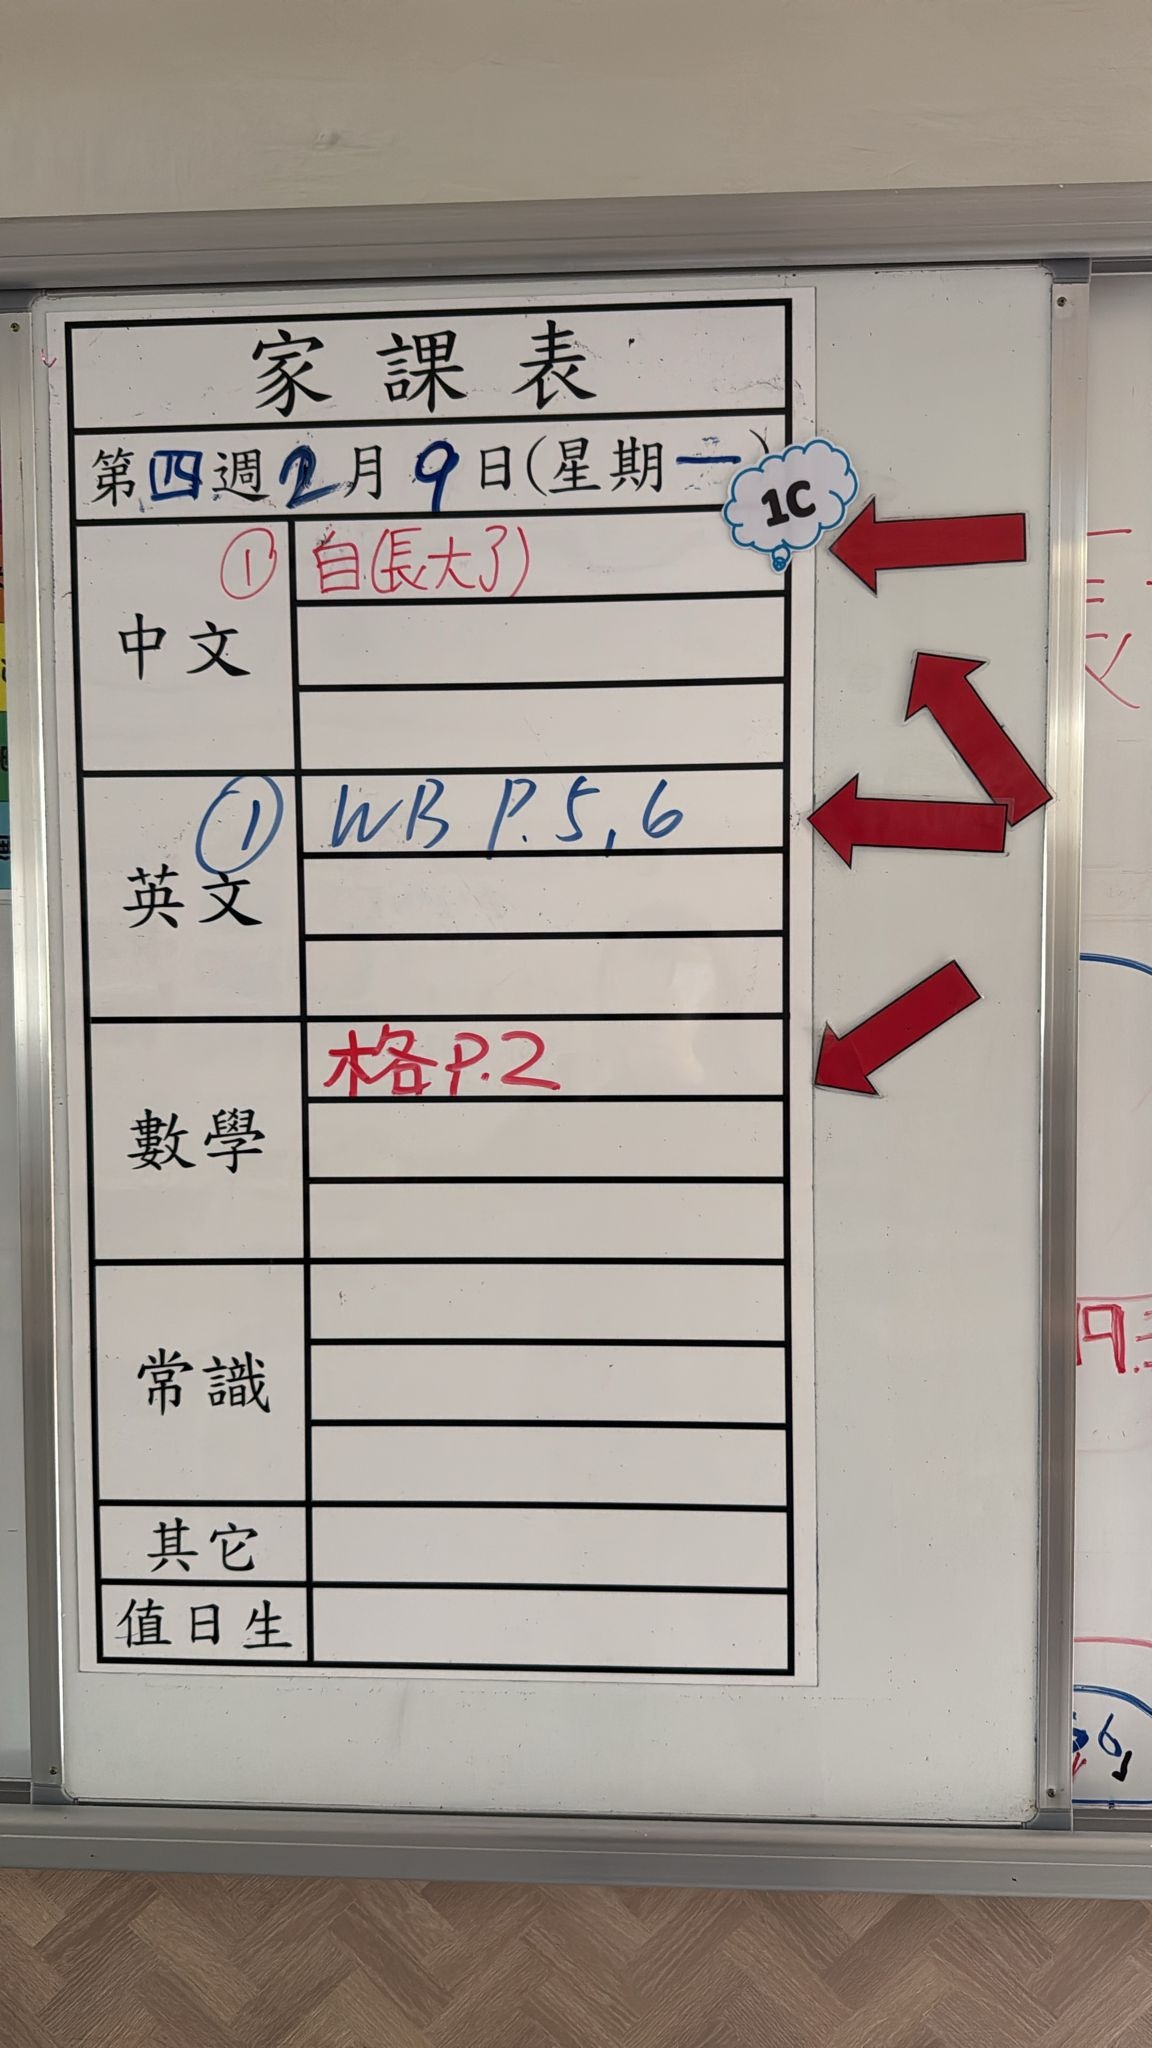 家課表
第四週2月9日(星期一)
1C
中文
① 自(長大了)
英文
① WB P.5,6
數學
格P.2
常識
其它
值日生
6